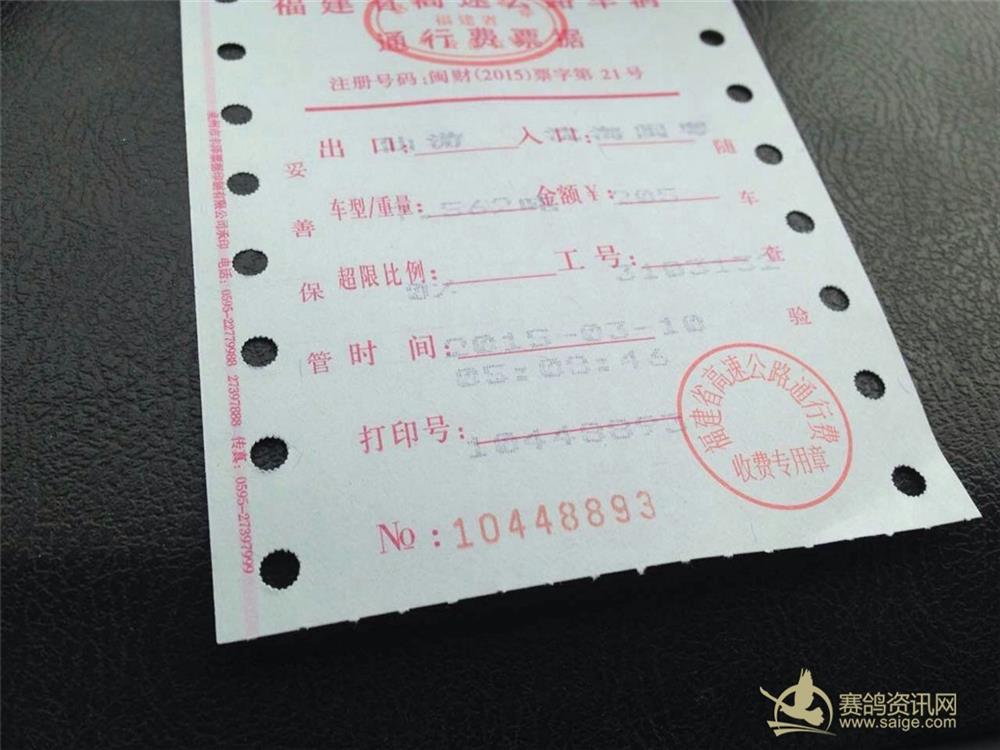 福建省高速公路车辆
福建省
通行费票据
注册号码:闽财(2015)票字第 21号
出 口: 仙游 入口:
车型/重量: 金额￥: 205
超限比例: 工号: 3103151
时 间: 2015-03-10
05:03:46
打印号: 10448893
№:10448893
妥善保管
随车查验
福建省高速公路通行费
收费专用章
印刷有限公司承印 电话:0595-22779988 27397888 传真:0595-27397999
赛鸽资讯网
www.saige.com